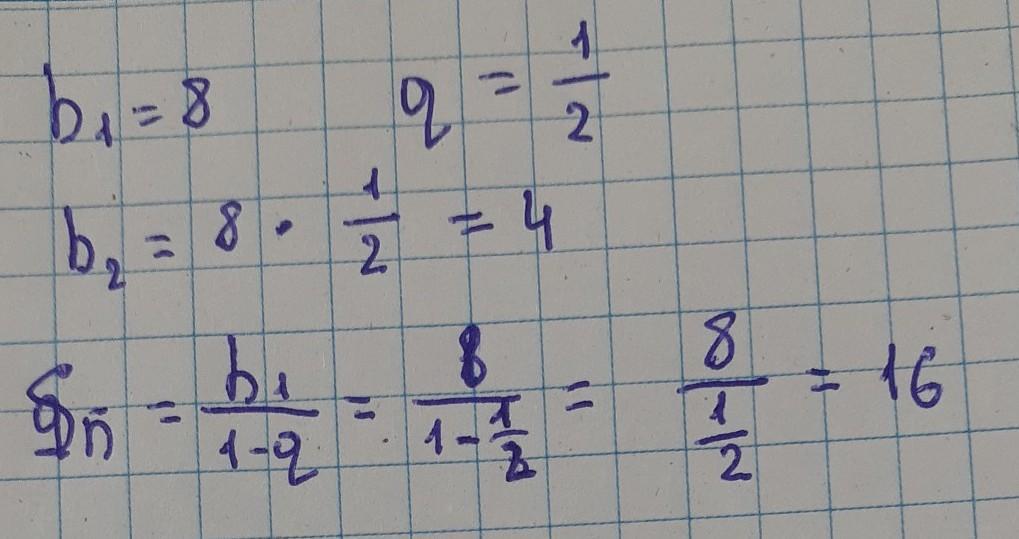 b₁ = 8 q = 1/2
b₂ = 8 · 1/2 = 4
Sₙ = b₁/(1-q) = 8/(1-1/2) = 8/(1/2) = 16